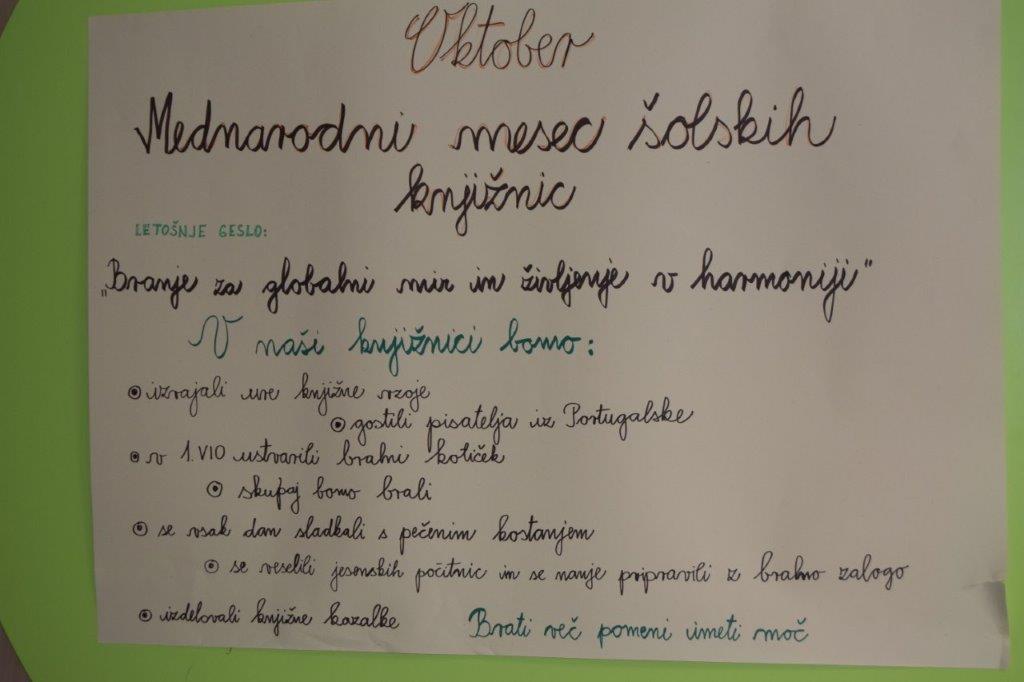 Oktober
Mednarodni mesec šolskih
knjižnic
LETOŠNJE GESLO:
„Branje za globalni mir in življenje v harmoniji"
V naši knjižnici bomo:
izvajali ure knjižne vzoje
gostili pisatelja iz Portugalske
v 1. VIO ustvarili bralni kotiček
skupaj bomo brali
se vsak dan sladkali s pečenim kostanjem
se veselili jesenskih počitnic in se nanje pripravili z bralno zalogo
izdelovali knjižne kazalke
Brati več pomeni imeti moč